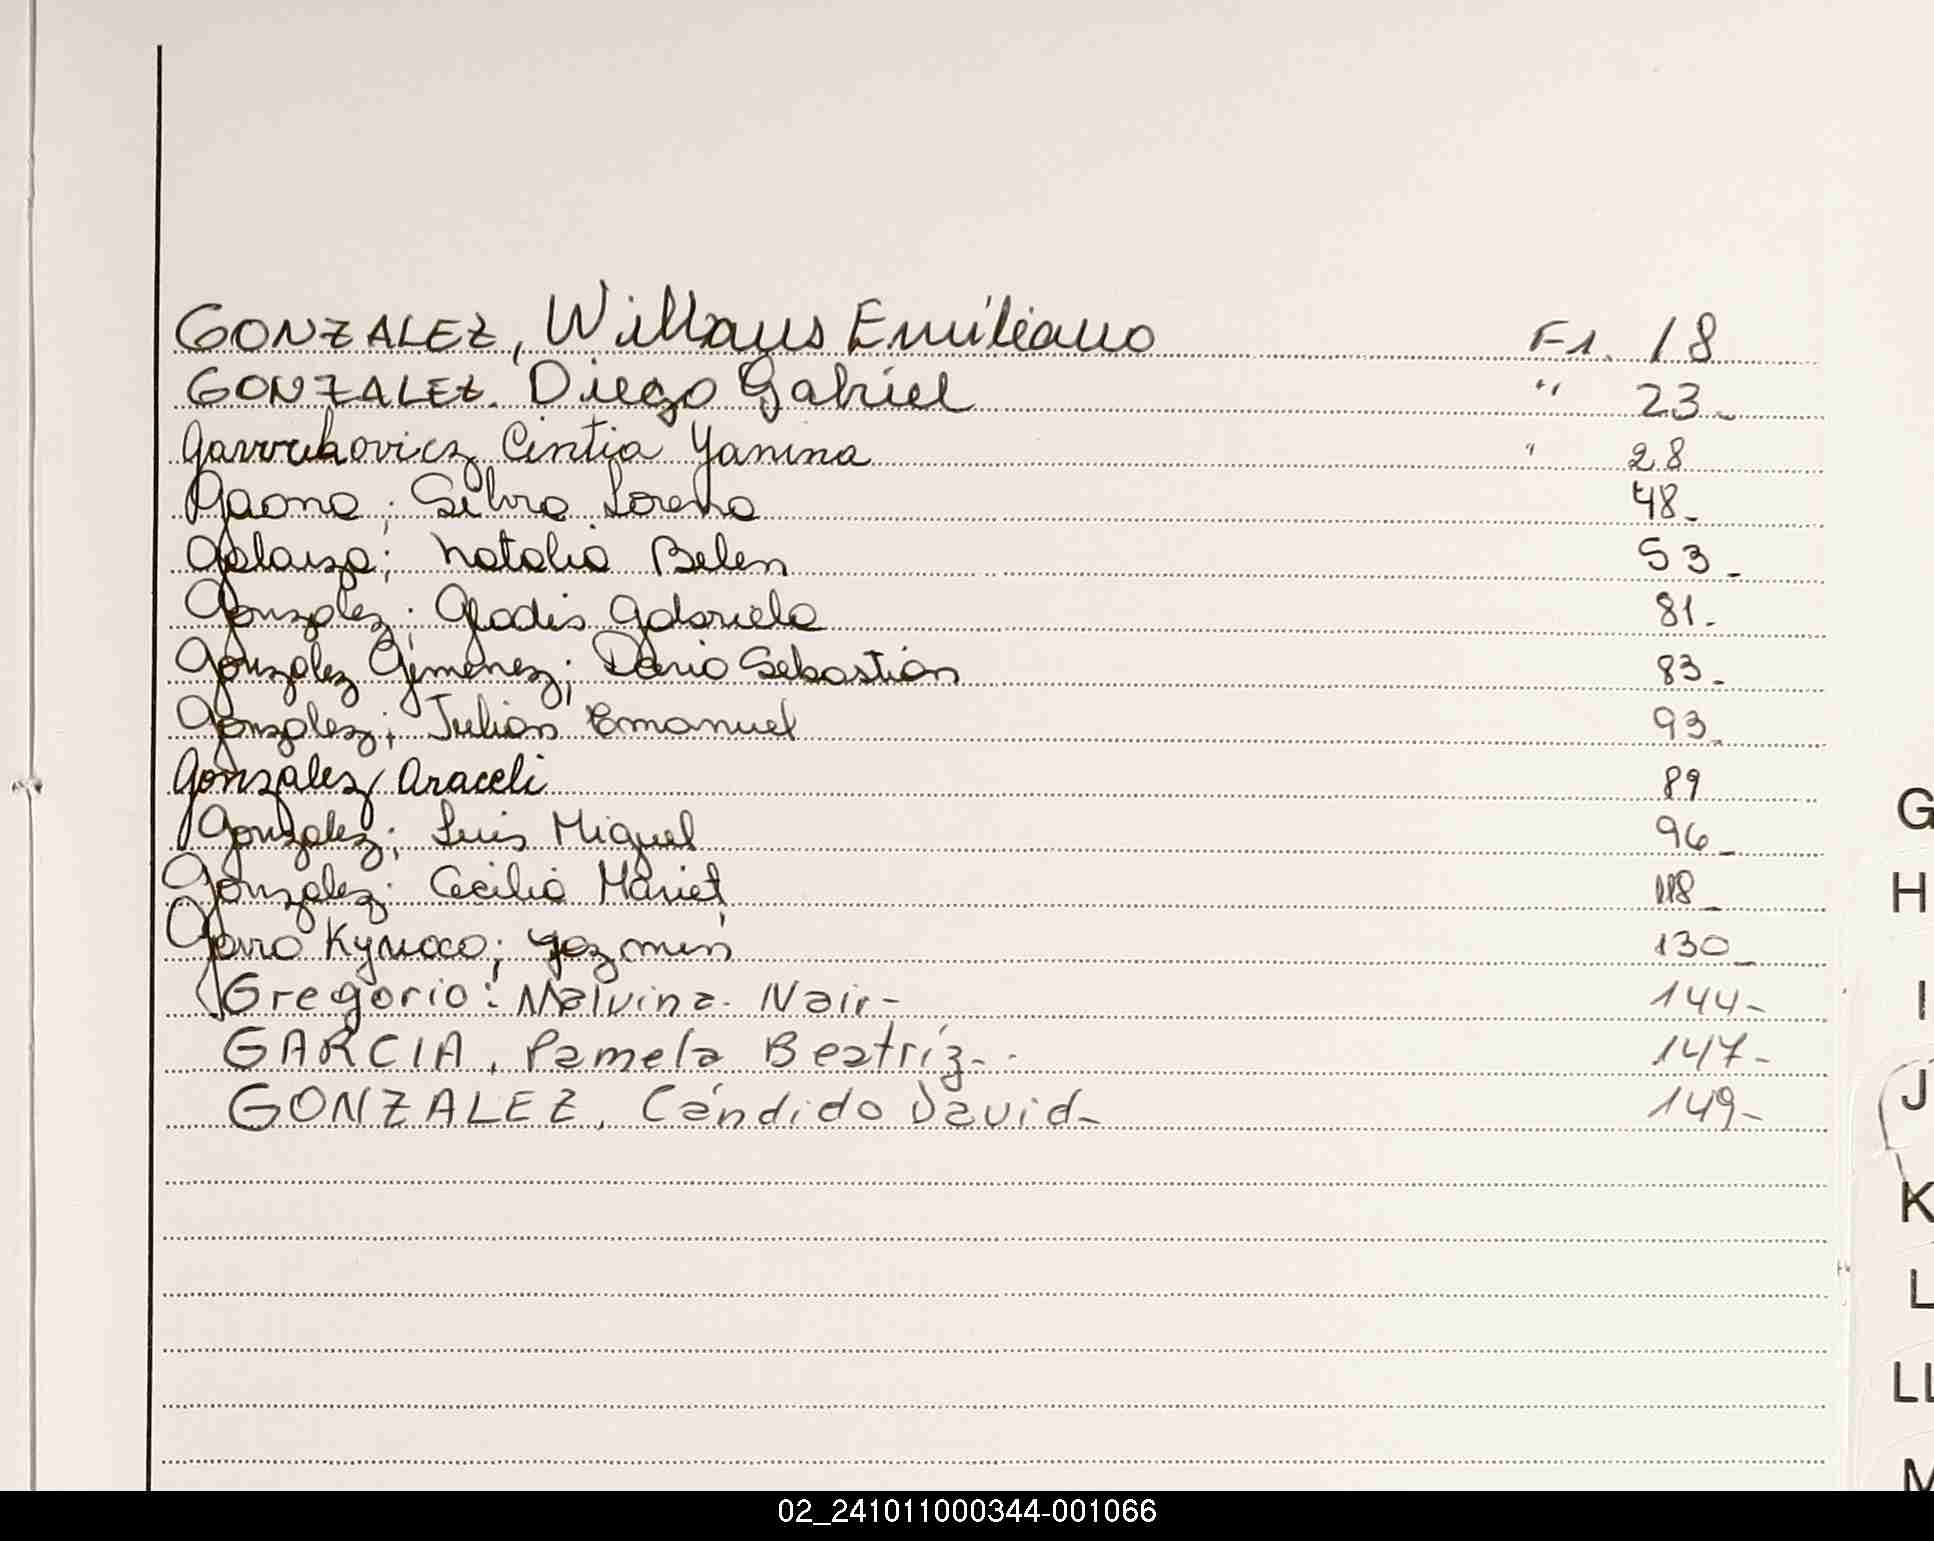 GONZALEZ, Willaus Emiliano F1. 18
GONZALEZ. Diego Gabriel " 23-
Gavrrekovicz Cintia Yanina " 28
Gaona; Silvia Lorena 48-
Galarza; Natalia Belen 53-
Gonzalez; Gladis Gabriela 81-
Gonzalez Gimenez; Dario Sebastián 83-
Gonzalez; Julian Emanuel 93-
Gonzalez, Araceli 89
Gonzalez; Luis Miguel 96-
Gonzalez; Cecilia Mariet 118-
130-
Gregorio: Malvina. Nair- 144-
GARCIA, Pamela Beatríz-. 147-
GONZALEZ, Cándido David- 149-
G
H
I
J
K
L
LL
M
02_241011000344-001066